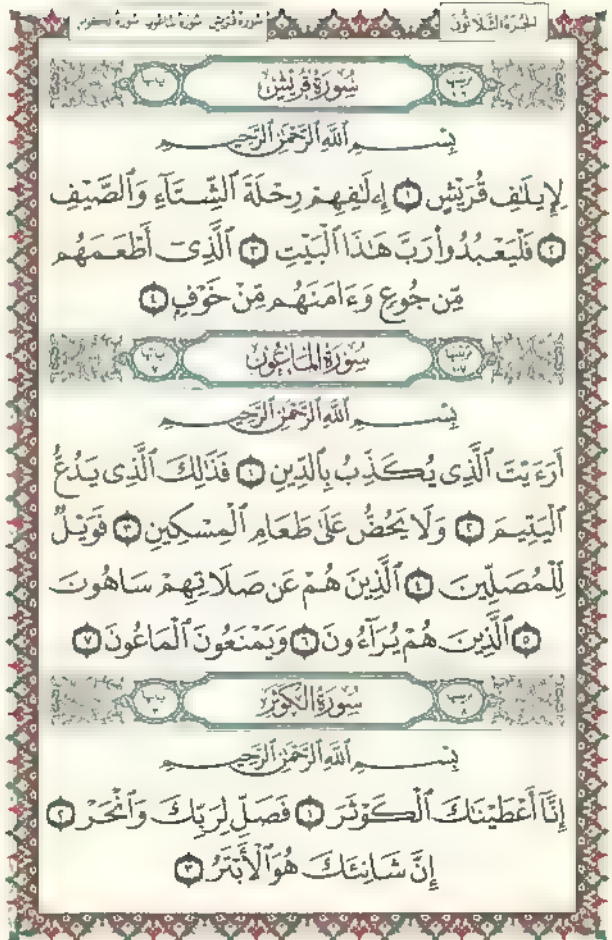 الجزء الثلاثون
سورة قريش سورة الماعون سورة الكوثر
سُورَةُ قُرَيْشٍ
بِسْمِ ٱللَّهِ ٱلرَّحْمَٰنِ ٱلرَّحِيمِ
لِإِيلَٰفِ قُرَيْشٍ ١ إِۦلَٰفِهِمْ رِحْلَةَ ٱلشِّتَآءِ وَٱلصَّيْفِ
٢ فَلْيَعْبُدُوا۟ رَبَّ هَٰذَا ٱلْبَيْتِ ٣ ٱلَّذِىٓ أَطْعَمَهُم
مِّن جُوعٍ وَءَامَنَهُم مِّنْ خَوْفٍۭ ٤
سُورَةُ المَاعُونِ
بِسْمِ ٱللَّهِ ٱلرَّحْمَٰنِ ٱلرَّحِيمِ
أَرَءَيْتَ ٱلَّذِى يُكَذِّبُ بِٱلدِّينِ ١ فَذَٰلِكَ ٱلَّذِى يَدُعُّ
ٱلْيَتِيمَ ٢ وَلَا يَحُضُّ عَلَىٰ طَعَامِ ٱلْمِسْكِينِ ٣ فَوَيْلٌ
لِّلْمُصَلِّينَ ٤ ٱلَّذِينَ هُمْ عَن صَلَاتِهِمْ سَاهُونَ
٥ ٱلَّذِينَ هُمْ يُرَآءُونَ ٦ وَيَمْنَعُونَ ٱلْمَاعُونَ ٧
سُورَةُ الكَوْثَرِ
بِسْمِ ٱللَّهِ ٱلرَّحْمَٰنِ ٱلرَّحِيمِ
إِنَّآ أَعْطَيْنَٰكَ ٱلْكَوْثَرَ ١ فَصَلِّ لِرَبِّكَ وَٱنْحَرْ ٢
إِنَّ شَانِئَكَ هُوَ ٱلْأَبْتَرُ ٣